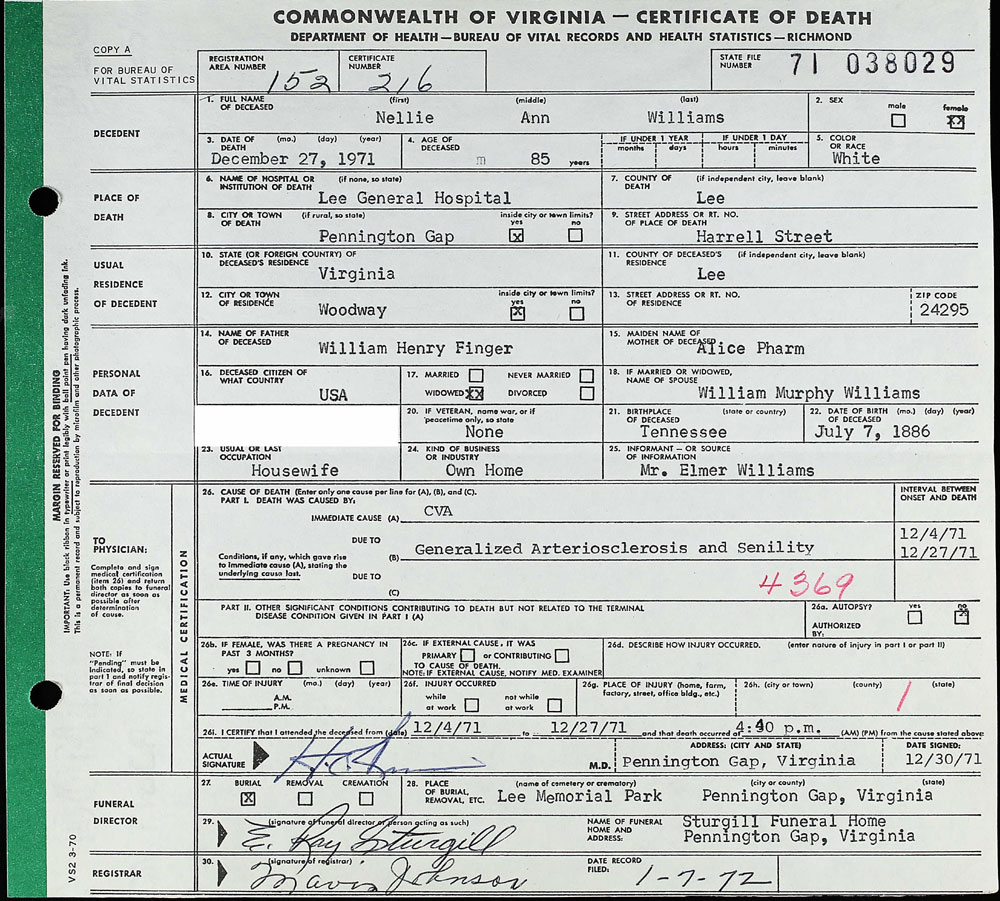 COMMONWEALTH OF VIRGINIA — CERTIFICATE OF DEATH
DEPARTMENT OF HEALTH—BUREAU OF VITAL RECORDS AND HEALTH STATISTICS—RICHMOND
COPY A
FOR BUREAU OF VITAL STATISTICS
REGISTRATION AREA NUMBER 152
CERTIFICATE NUMBER 216
STATE FILE NUMBER 71 038029
DECEDENT
1. FULL NAME OF DECEASED (first) (middle) (last)
Nellie Ann Williams
2. SEX male female XX
3. DATE OF DEATH (mo.) (day) (year)
December 27, 1971
4. AGE OF DECEASED m 85 years
IF UNDER 1 YEAR months days
IF UNDER 1 DAY hours minutes
5. COLOR OR RACE
White
PLACE OF DEATH
6. NAME OF HOSPITAL OR INSTITUTION OF DEATH (if none, so state)
Lee General Hospital
7. COUNTY OF DEATH (if independent city, leave blank)
Lee
8. CITY OR TOWN OF DEATH (if rural, so state) inside city or town limits? yes X no
Pennington Gap
9. STREET ADDRESS OR RT. NO. OF PLACE OF DEATH
Harrell Street
USUAL RESIDENCE OF DECEDENT
10. STATE (OR FOREIGN COUNTRY) OF DECEASED'S RESIDENCE
Virginia
11. COUNTY OF DECEASED'S RESIDENCE (if independent city, leave blank)
Lee
12. CITY OR TOWN OF RESIDENCE inside city or town limits? yes X no
Woodway
13. STREET ADDRESS OR RT. NO. OF RESIDENCE
ZIP CODE
24295
PERSONAL DATA OF DECEDENT
14. NAME OF FATHER OF DECEASED
William Henry Finger
15. MAIDEN NAME OF MOTHER OF DECEASED
Alice Pharm
16. DECEASED CITIZEN OF WHAT COUNTRY
USA
17. MARRIED NEVER MARRIED
WIDOWED XX DIVORCED
18. IF MARRIED OR WIDOWED, NAME OF SPOUSE
William Murphy Williams
20. IF VETERAN, name war, or if peacetime only, so state
None
21. BIRTHPLACE OF DECEASED (state or country)
Tennessee
22. DATE OF BIRTH OF DECEASED (mo.) (day) (year)
July 7, 1886
23. USUAL OR LAST OCCUPATION
Housewife
24. KIND OF BUSINESS OR INDUSTRY
Own Home
25. INFORMANT - OR SOURCE OF INFORMATION
Mr. Elmer Williams
MARGIN RESERVED FOR BINDING
IMPORTANT: Use black ribbon in typewriter or print legibly with ball point pen having dark unfading ink.
This is a permanent record and subject to reproduction by microfilm and other photographic process.
TO PHYSICIAN:
Complete and sign medical certification (item 26) and return both copies to funeral director as soon as possible after determination of cause.
NOTE: IF "Pending" must be indicated, so state in part I and notify registrar of final decision as soon as possible.
MEDICAL CERTIFICATION
26. CAUSE OF DEATH (Enter only one cause per line for (A), (B), and (C).
PART I. DEATH WAS CAUSED BY:
INTERVAL BETWEEN ONSET AND DEATH
IMMEDIATE CAUSE (A) CVA
DUE TO
12/4/71
Conditions, if any, which gave rise to immediate cause (A), stating the underlying cause last.
(B) Generalized Arteriosclerosis and Senility
12/27/71
DUE TO
(C)
4369
PART II. OTHER SIGNIFICANT CONDITIONS CONTRIBUTING TO DEATH BUT NOT RELATED TO THE TERMINAL DISEASE CONDITION GIVEN IN PART I (A)
26a. AUTOPSY? yes no X
AUTHORIZED BY:
26b. IF FEMALE, WAS THERE A PREGNANCY IN PAST 3 MONTHS?
yes no unknown
26c. IF EXTERNAL CAUSE, IT WAS
PRIMARY or CONTRIBUTING
TO CAUSE OF DEATH.
NOTE: IF EXTERNAL CAUSE, NOTIFY MED. EXAMINER
26d. DESCRIBE HOW INJURY OCCURRED. (enter nature of injury in part I or part II)
26e. TIME OF INJURY (mo.) (day) (year)
A.M.
P.M.
26f. INJURY OCCURRED
while at work not while at work
26g. PLACE OF INJURY (home, farm, factory, street, office bldg., etc.)
26h. (city or town) (county) (state)
26i. I CERTIFY that I attended the deceased from (date) 12/4/71 to 12/27/71 and that death occurred at 4:40 p.m. (AM) (PM) from the cause stated above
ACTUAL SIGNATURE
M.D.
ADDRESS: (CITY AND STATE)
Pennington Gap, Virginia
DATE SIGNED:
12/30/71
FUNERAL DIRECTOR
27. BURIAL X REMOVAL CREMATION
28. PLACE OF BURIAL, REMOVAL, ETC. (name of cemetery or crematory) (city or county) (state)
Lee Memorial Park Pennington Gap, Virginia
29. (signature of funeral director or person acting as such)
E. Ray Sturgill
NAME OF FUNERAL HOME AND ADDRESS:
Sturgill Funeral Home
Pennington Gap, Virginia
REGISTRAR
30. (signature of registrar)
Mavis Johnson
DATE RECORD FILED:
1-7-72
VS2 3-70